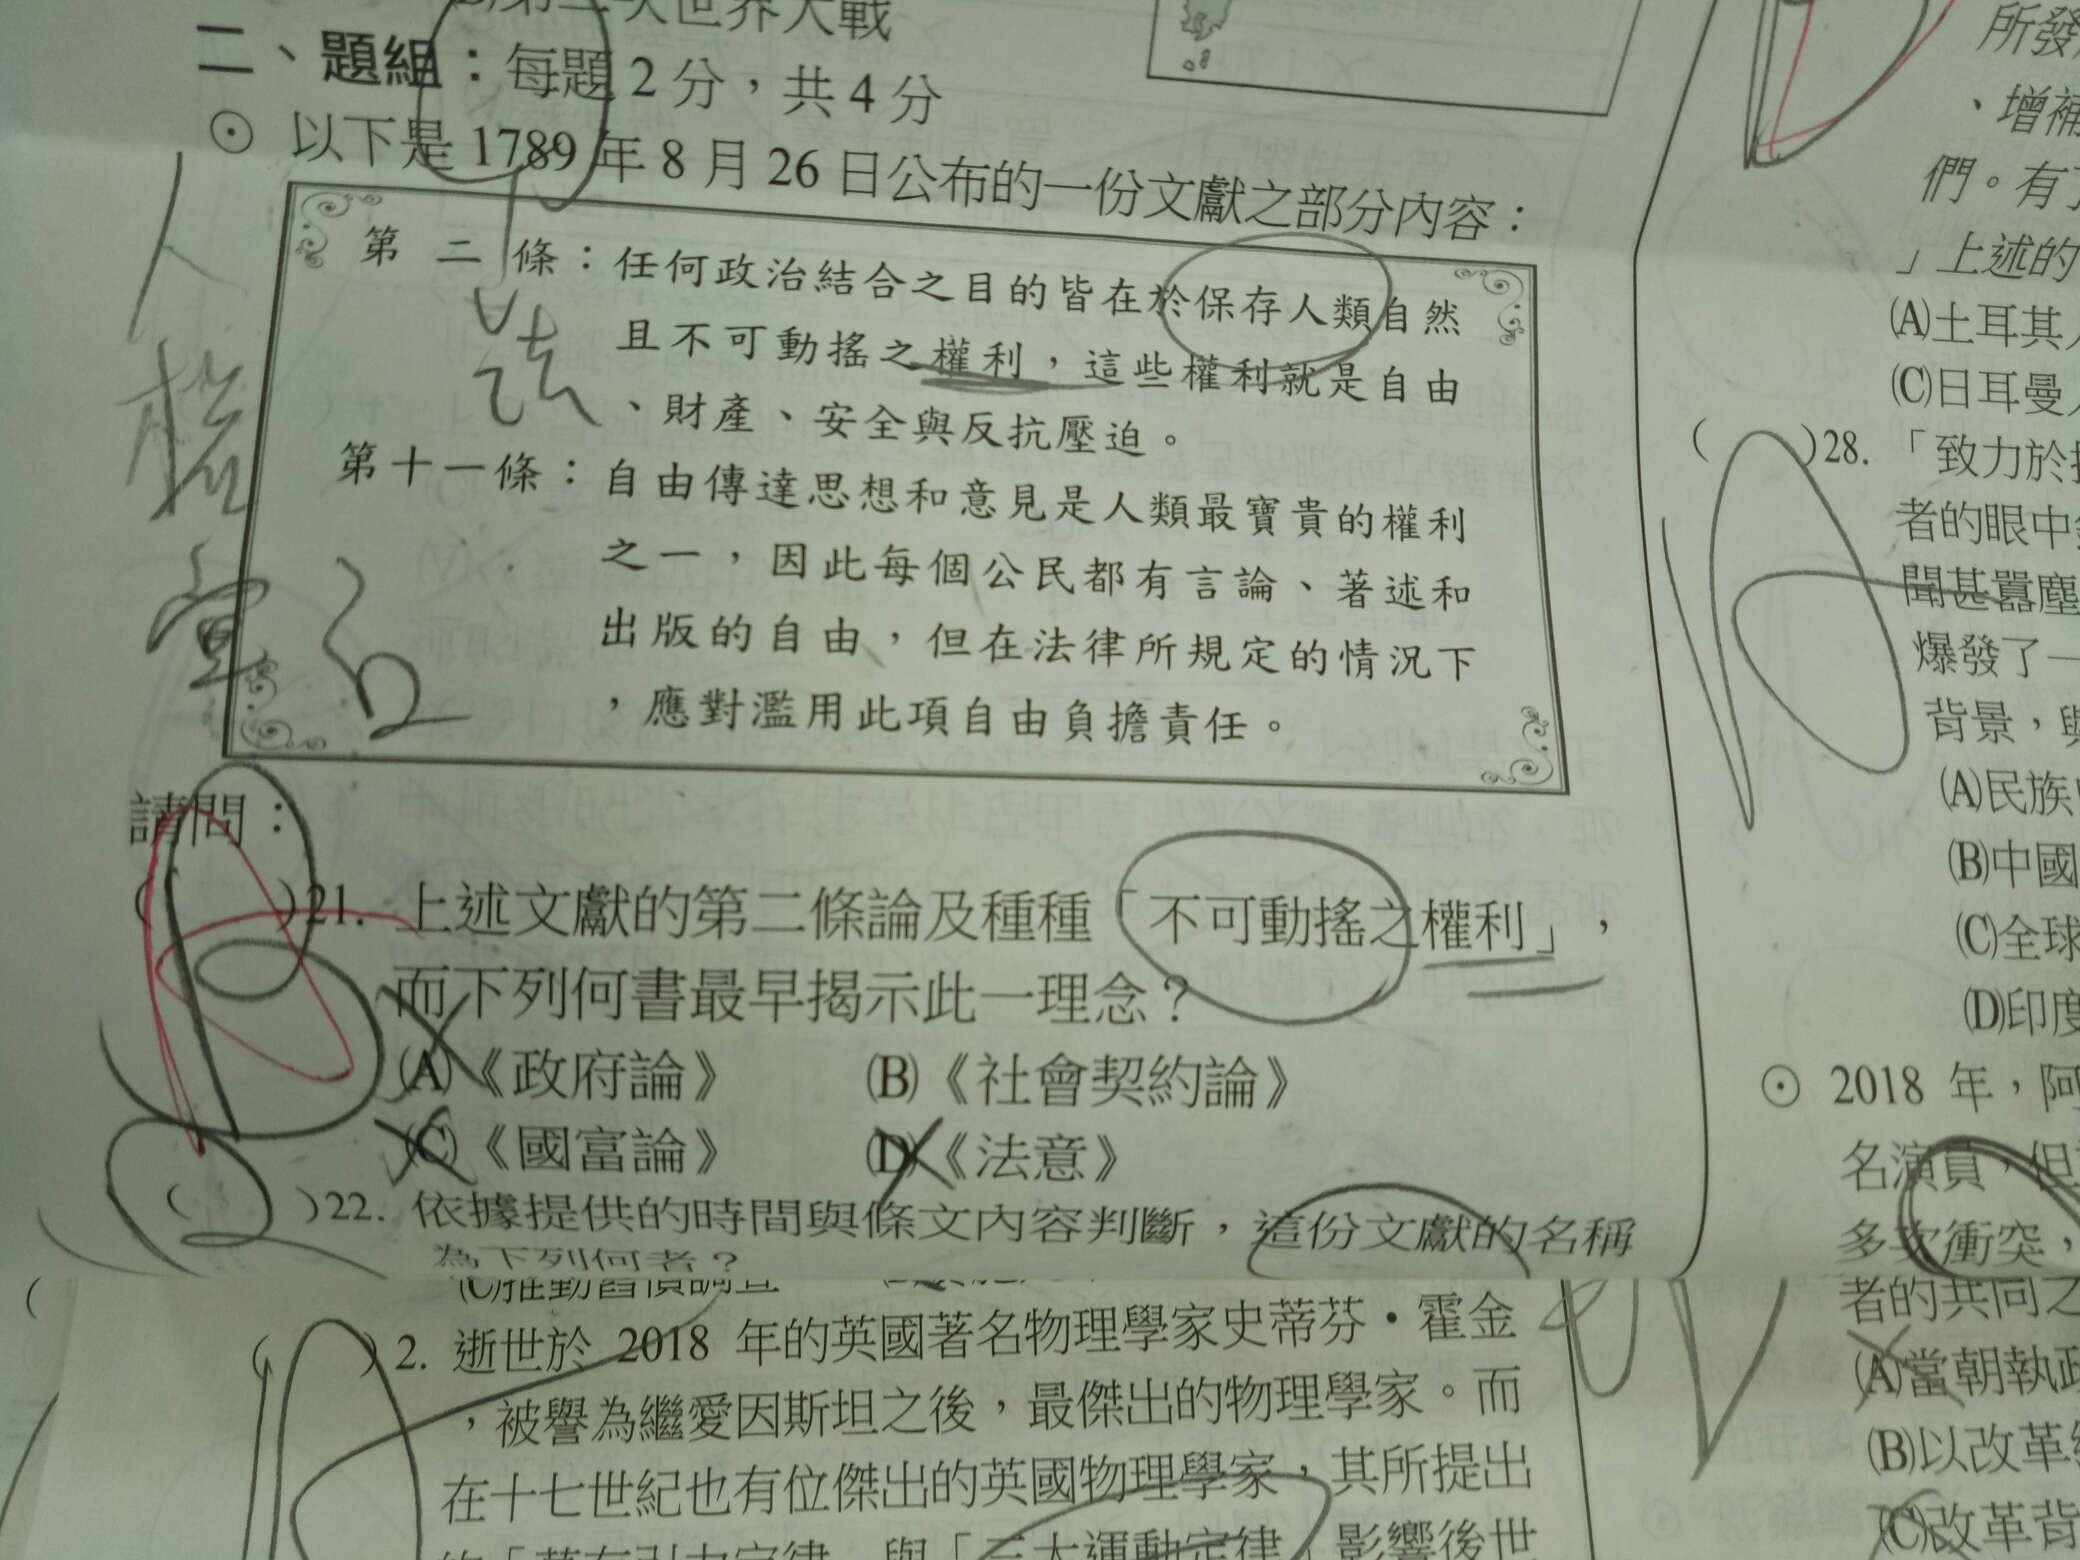 次世界大戰
二、題組：每題2分，共4分
⊙ 以下是 1789 年 8 月 26 日公布的一份文獻之部分內容：
第二條：任何政治結合之目的皆在於保存人類自然
且不可動搖之權利，這些權利就是自由
、財產、安全與反抗壓迫。
第十一條：自由傳達思想和意見是人類最寶貴的權利
之一，因此每個公民都有言論、著述和
出版的自由，但在法律所規定的情況下
，應對濫用此項自由負擔責任。
人權宣
法
請問：
( )21. 上述文獻的第二條論及種種「不可動搖之權利」，
而下列何書最早揭示此一理念？
(A)《政府論》 (B)《社會契約論》
(C)《國富論》 (D)《法意》
( )22. 依據提供的時間與條文內容判斷，這份文獻的名稱
為下列何者？
(C)推動舊慣調查
( )2. 逝世於 2018 年的英國著名物理學家史蒂芬・霍金
，被譽為繼愛因斯坦之後，最傑出的物理學家。而
在十七世紀也有位傑出的英國物理學家，其所提出
的「萬有引力定律」與「三大運動定律」影響後世
所發
、增補
們。有了
」上述的
(A)土耳其人
(C)日耳曼人
( )28. 「致力於
者的眼中
聞甚囂塵
爆發了一
背景，與
(A)民族
(B)中國
(C)全球
(D)印度
⊙ 2018 年，阿
名演員，但
多次衝突，
者的共同之
(A)當朝執政
(B)以改革
(C)改革背